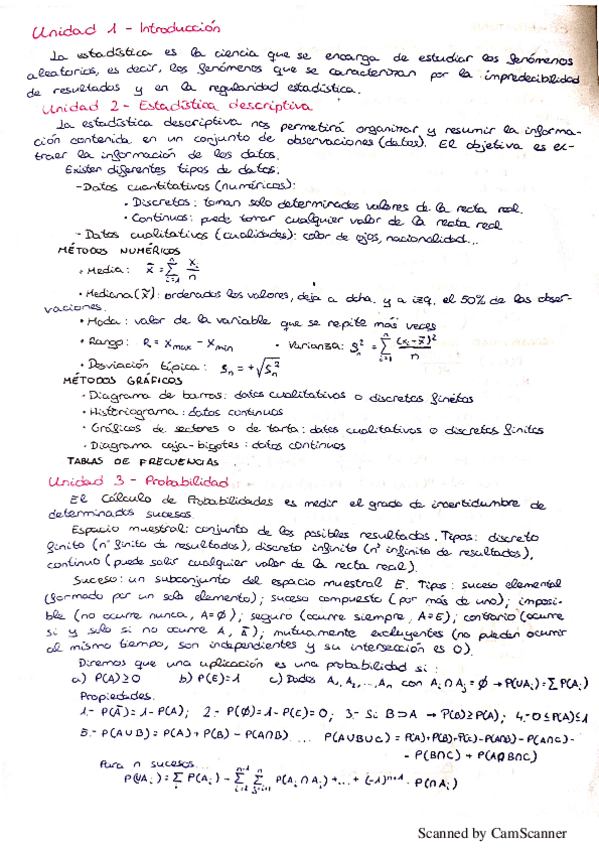 Unidad 1 - Introducción
La estadística es la ciencia que se encarga de estudiar los fenómenos
aleatorios, es decir, los fenómenos que se caracterizan por la impredecibilidad
de resultados y en la regularidad estadística.
Unidad 2 - Estadística descriptiva
La estadística descriptiva nos permetirá organizar y resumir la informa-
ción contenida en un conjunto de observaciones (datos). El objetivo es ex-
traer la información de los datos.
Existen diferentes tipos de datos:
- Datos cuantitativos (numéricos):
• Discretos: toman solo determinados valores de la recta real.
• Continuos: puede tomar cualquier valor de la recta real
- Datos cualitativos (cualidades): color de ojos, nacionalidad...
MÉTODOS NUMÉRICOS
• Media: x̄ = Σ_{i=1}^{n} x_i/n
• Mediana (x̃): ordenados los valores, deja a dcha. y a izq. el 50% de las obser-
vaciones.
• Moda: valor de la variable que se repite más veces
• Rango: R = x_max - x_min • Varianza: S_n² = Σ_{i=1}^{n} (x_i - x̄)²/n
• Desviación típica: S_n = +√S_n²
MÉTODOS GRÁFICOS
• Diagrama de barras: datos cualitativos o discretos finitos
• Historiograma: datos continuos
• Gráficos de sectores o de tarta: datos cualitativos o discretos finitos
• Diagrama caja-bigotes: datos continuos
TABLAS DE FRECUENCIAS
Unidad 3 - Probabilidad
El Cálculo de Probabilidades es medir el grado de incertidumbre de
determinados sucesos.
Espacio muestral: conjunto de los posibles resultados. Tipos: discreto
finito (nº finito de resultados), discreto infinito (nº infinito de resultados),
continuo (puede salir cualquier valor de la recta real).
Suceso: un subconjunto del espacio muestral E. Tipos: suceso elemental
(formado por un solo elemento); suceso compuesto (por más de uno); imposi-
ble (no ocurre nunca, A=∅); seguro (ocurre siempre, A=E); contrario (ocurre
si y solo si no ocurre A, Ā); mutuamente excluyentes (no pueden ocurrir
al mismo tiempo, son independientes y su intersección es 0).
Diremos que una aplicación es una probabilidad si:
a) P(A)≥0 b) P(E)=1 c) Dados A₁, A₂, ..., Aₙ con A_i∩A_j=∅ → P(∪A_i)=ΣP(A_i)
Propiedades.
1.- P(Ā)=1-P(A); 2.- P(∅)=1-P(E)=0; 3.- Si B⊃A → P(B)≥P(A); 4.- 0≤P(A)≤1
5.- P(A∪B)=P(A)+P(B)-P(A∩B) ... P(A∪B∪C)=P(A)+P(B)+P(C)-P(A∩B)-P(A∩C)-
- P(B∩C) + P(A∩B∩C)
Para n sucesos...
P(∪A_i)=Σ_i P(A_i) - Σ_{i=1}^{n-1} Σ_{j=i+1}^{n} P(A_i∩A_j)+...+(-1)^{n+1}·P(∩A_i)
Scanned by CamScanner